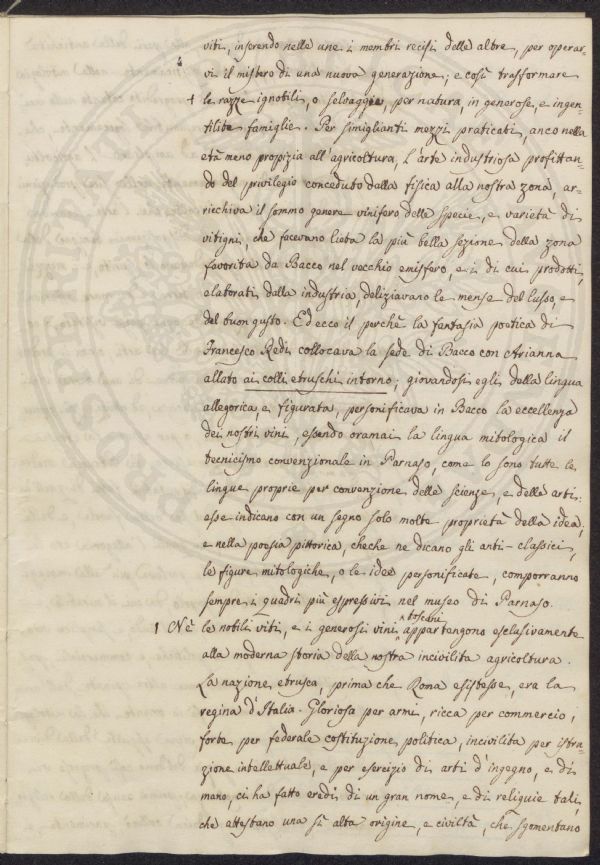 viti, inserendo nelle une i membri recisi delle altre, per operar-
vi il mistero di una nuova generazione; e così trasformare
le razze ignobili, o selvagge per natura, in generose, e ingen-
tilite famiglie. Per simiglianti mezzi praticati, anco nella
età meno propizia all'agricoltura, L'arte industriosa profittan-
do del privilegio conceduto dalla fisica alla nostra zona, ar-
ricchiva il sommo genere vinifero delle specie, e varietà di
vitigni, che facevano lieta la più bella sezione della zona
favorita da Bacco nel vecchio emisfero, e i di cui prodotti,
elaborati dalla industria, deliziavano le mense del lusso, e
del buon gusto. Ed ecco il perchè la fantasia poetica di
Francesco Redi collocava la sede di Bacco con Arianna
allato ai colli etruschi intorno; giovandosi egli della lingua
allegorica, e figurata, personificava in Bacco la eccellenza
dei nostri vini, essendo oramai la lingua mitologica il
tecnicismo convenzionale in Parnaso, come lo sono tutte le
lingue proprie per convenzione delle scienze, e delle arti:
esse indicano con un segno solo molte proprietà della idea;
e nella poesia pittorica, chechè ne dicano gli anti-classici,
le figure mitologiche, o le idee personificate, comporranno
sempre i quadri più espressivi nel museo di Parnaso.
1 Nè le nobili viti, e i generosi vini toscani appartengono esclusivamente
alla moderna storia della nostra incivilita agricoltura.
La nazione etrusca, prima che Roma esistesse, era la
regina d'Italia. Gloriosa per armi, ricca per commercio,
forte per federale costituzione politica, incivilita per istru-
zione intellettuale, e per esercizio di arti d'ingegno, e di
mano, ci ha fatto eredi di un gran nome, e di reliquie tali,
che attestano una sì alta origine, e civiltà, che sgomentano